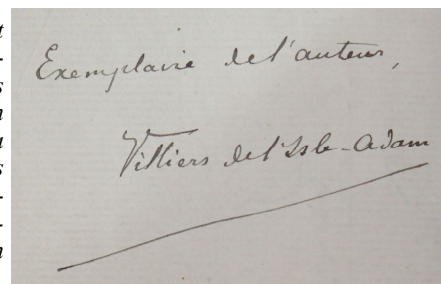 Exemplaire de l'auteur,
Villiers de l'Isle-Adam